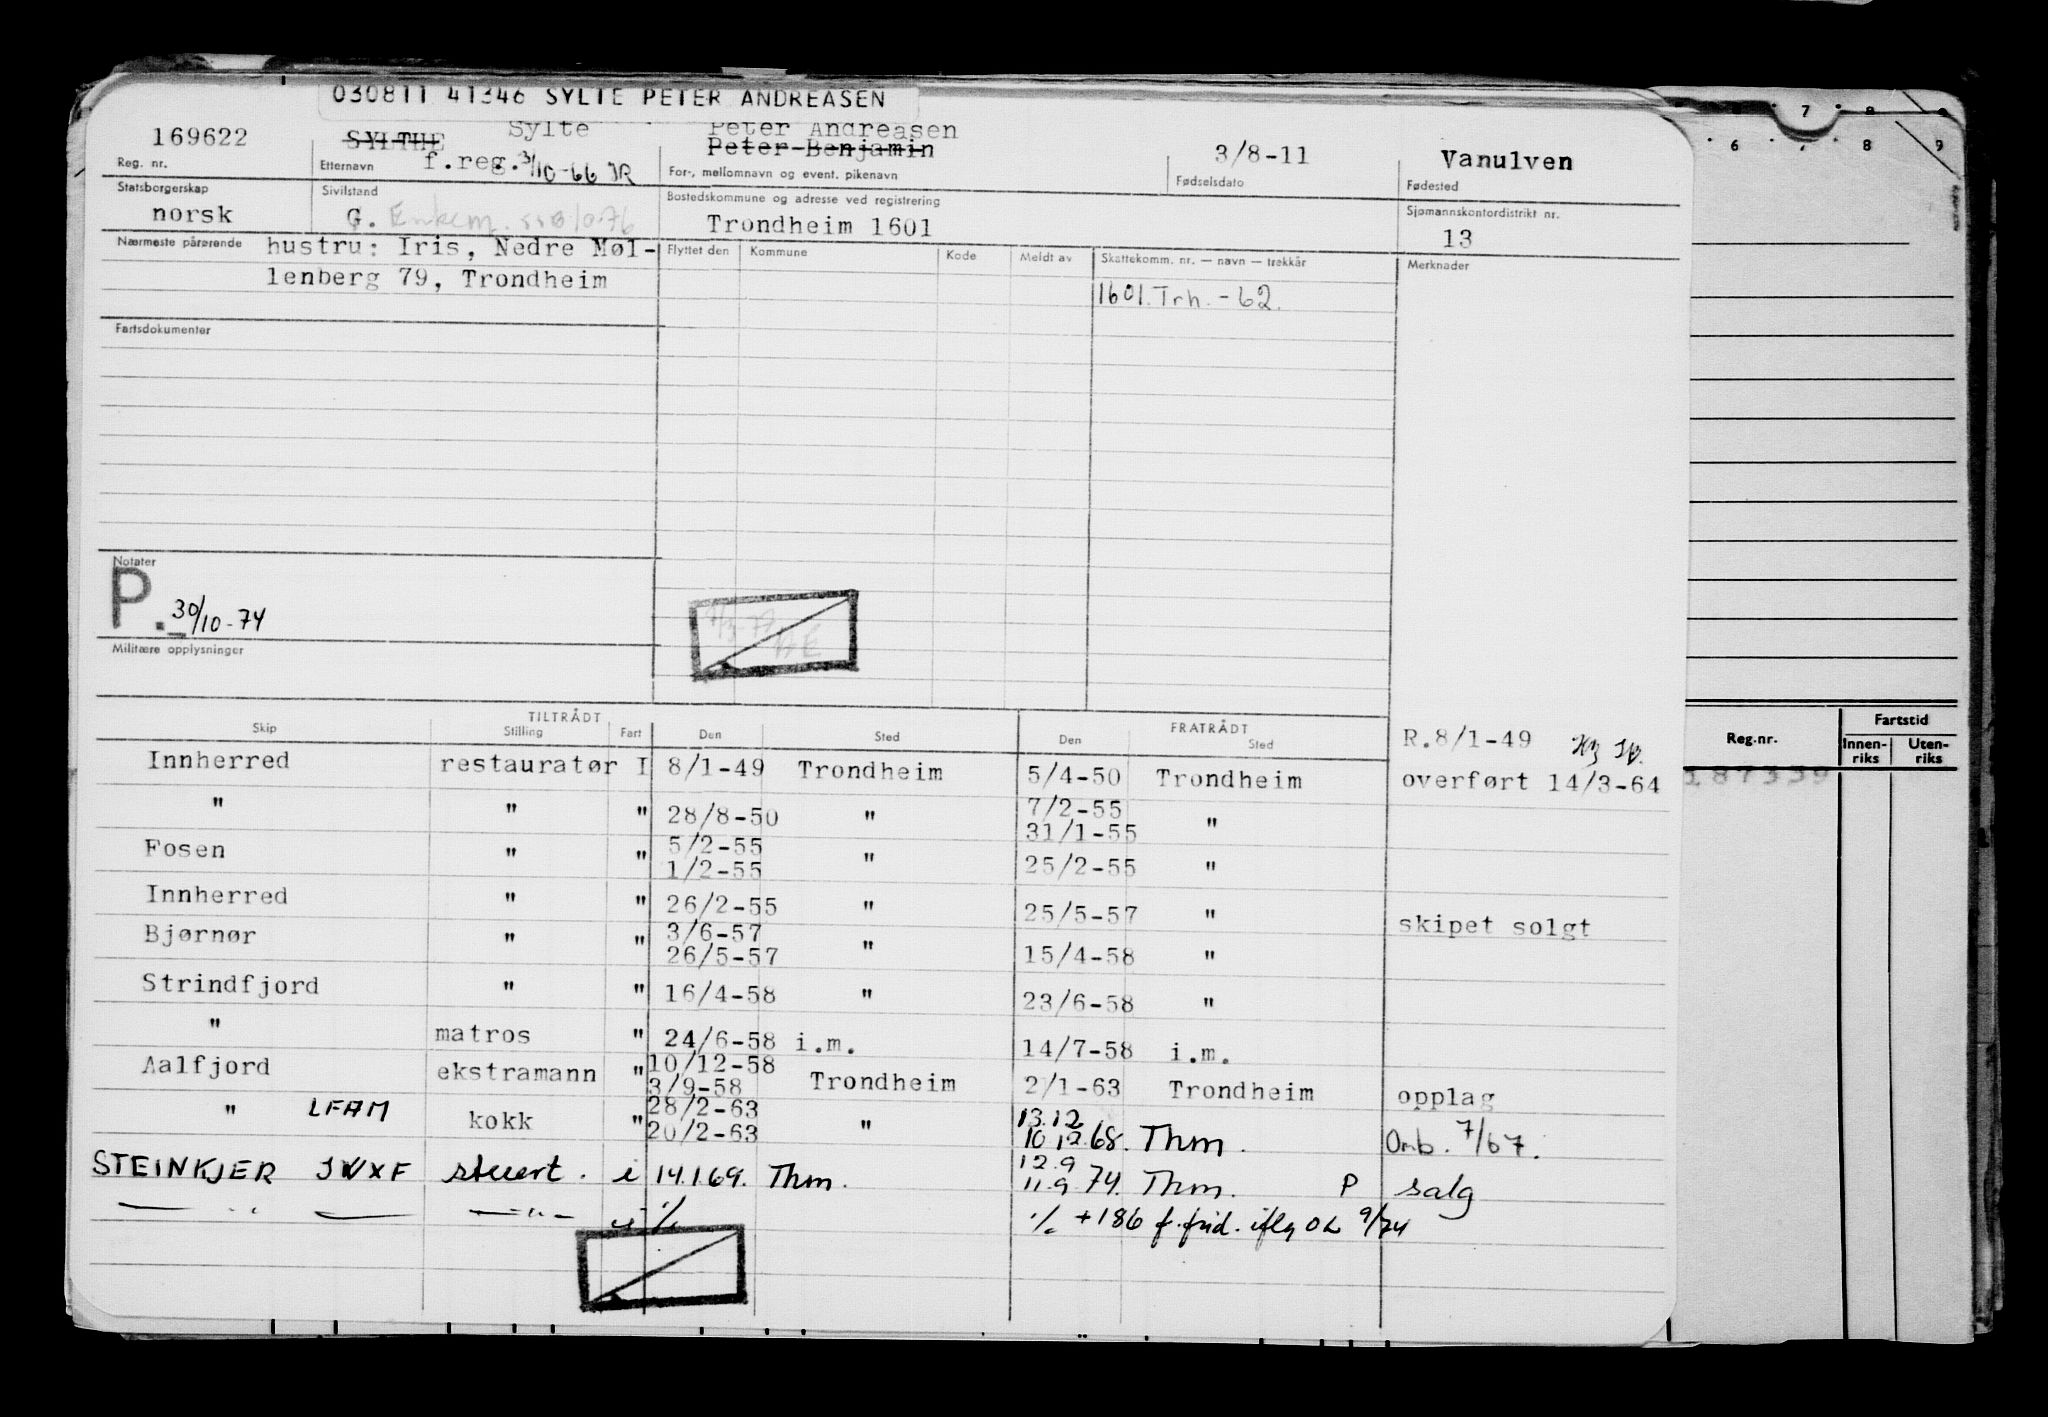 030811 41346 SYLTE PETER ANDREASEN
169622 SYLTHE Sylte Peter Andreasen
f.reg. 3/10-66 JR Peter Benjamin 3/8-11 Vanulven
Reg. nr. Etternavn For-, mellomnavn og event. pikenavn Fødselsdato Fødested
Statsborgerskap Sivilstand Bostedskommune og adresse ved registrering Sjømannskontordistrikt nr.
norsk G. Enkem. Trondheim 1601 13
Nærmeste pårørende hustru: Iris, Nedre Møl-
lenberg 79, Trondheim
Flyttet den Kommune Kode Meldt av Skattekomm. nr. — navn — trekkår Merknader
1601. Trh. - 62.
Fartsdokumenter
Notater
P. 30/10-74
Militære opplysninger
TILTRÅDT FRATRÅDT
Skip Stilling Fart Den Sted Den Sted
R.8/1-49
Innherred restauratør I 8/1-49 Trondheim 5/4-50 Trondheim overført 14/3-64
" " " 28/8-50 " 7/2-55
31/1-55 "
Fosen " " 5/2-55
1/2-55 " 25/2-55 "
Innherred " " 26/2-55 " 25/5-57 " skipet solgt
Bjørnør " " 3/6-57
26/5-57 " 15/4-58 "
Strindfjord " " 16/4-58 " 23/6-58 "
" matros " 24/6-58 i.m. 14/7-58 i.m.
Aalfjord ekstramann " 10/12-58
3/9-58 Trondheim 2/1-63 Trondheim opplag
" LFAM kokk " 28/2-63
20/2-63 " 13.12
10.12.68. Thm. Omb. 7/67.
STEINKJER JWXF stuert. i 14.1.69. Thm. 12.9
11.9.74. Thm. P salg
— " — — — " — % % +186 f. frid. iflg OL 9/74
6 7 8 9
7 8 9
Reg.nr. Fartstid
Innen-
riks Uten-
riks
187339